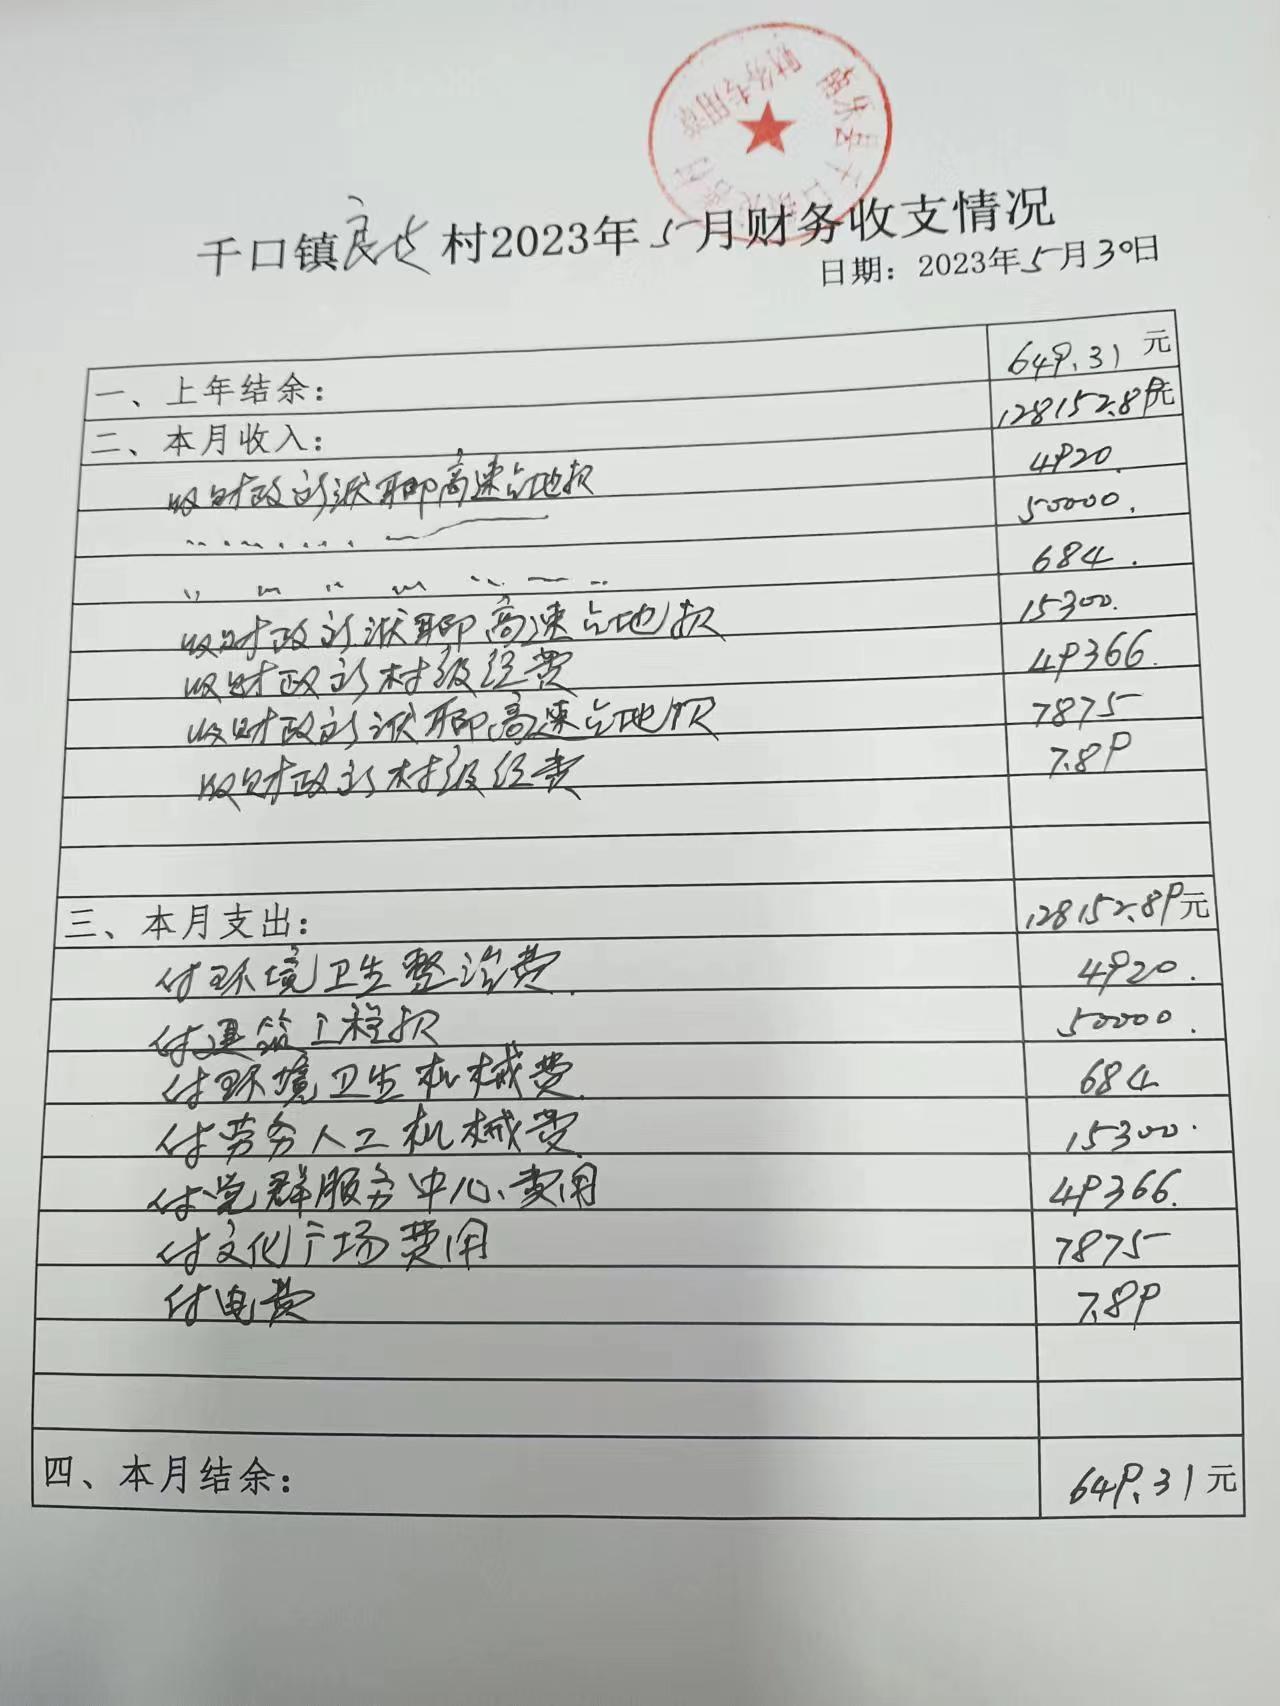 财务专用章
南乐县千口镇
千口镇良善村2023年5月财务收支情况
日期：2023年5月30日
一、上年结余： 649.31元
二、本月收入： 128152.89元
收财政新濮聊高速占地款 4920.
〃 〃 〃 〃 〃 〃 50000.
〃 〃 〃 〃 〃 〃 〃 684.
收财政新濮聊高速占地款 15300.
收财政新村级经费 49366.
收财政新濮聊高速占地款 7875
收财政新村级经费 7.89
三、本月支出： 128152.89元
付环境卫生整治费. 4920.
付建筑工程款 50000.
付环境卫生机械费. 684
付劳务人工机械费. 15300.
付党群服务中心费用 49366.
付文化广场费用 7875
付电费 7.89
四、本月结余： 649.31元